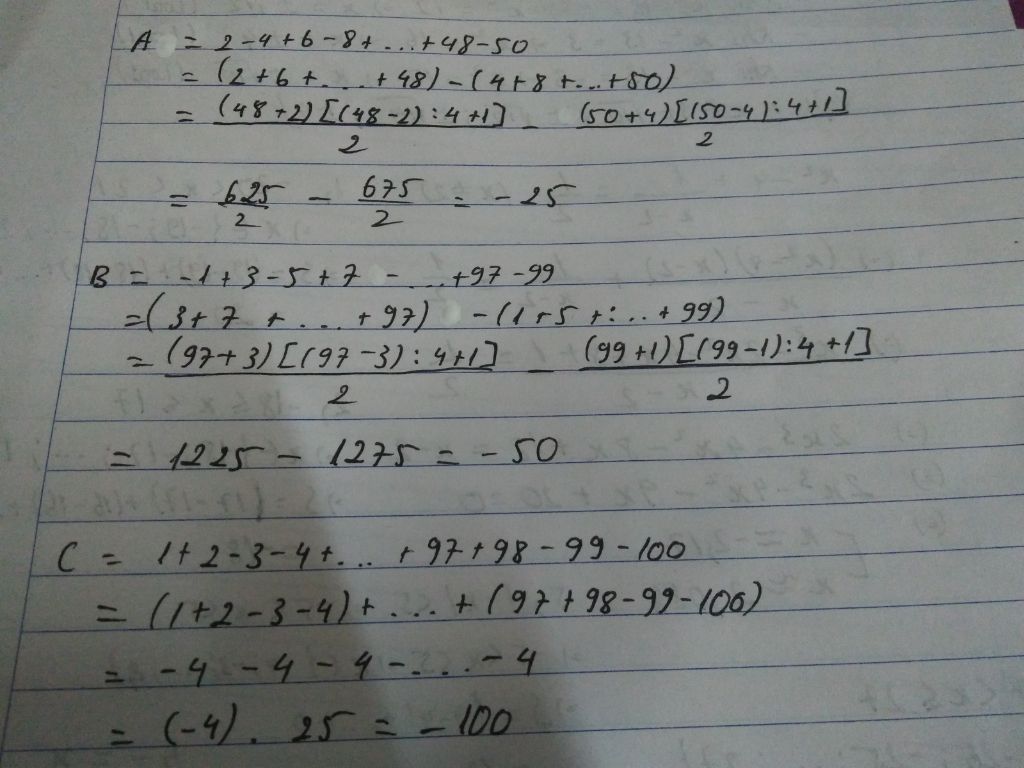 A = 2-4+6-8+...+48-50
= (2+6+...+48)-(4+8+...+50)
= (48+2)[(48-2):4+1]/2 - (50+4)[(50-4):4+1]/2
= 625/2 - 675/2 = -25
B = -1+3-5+7-...+97-99
=(3+7+...+97) -(1+5+...+99)
= (97+3)[(97-3):4+1]/2 - (99+1)[(99-1):4+1]/2
= 1225 - 1275 = -50
C = 1+2-3-4+...+97+98-99-100
= (1+2-3-4)+...+(97+98-99-100)
= -4-4-4-...-4
= (-4). 25 = -100